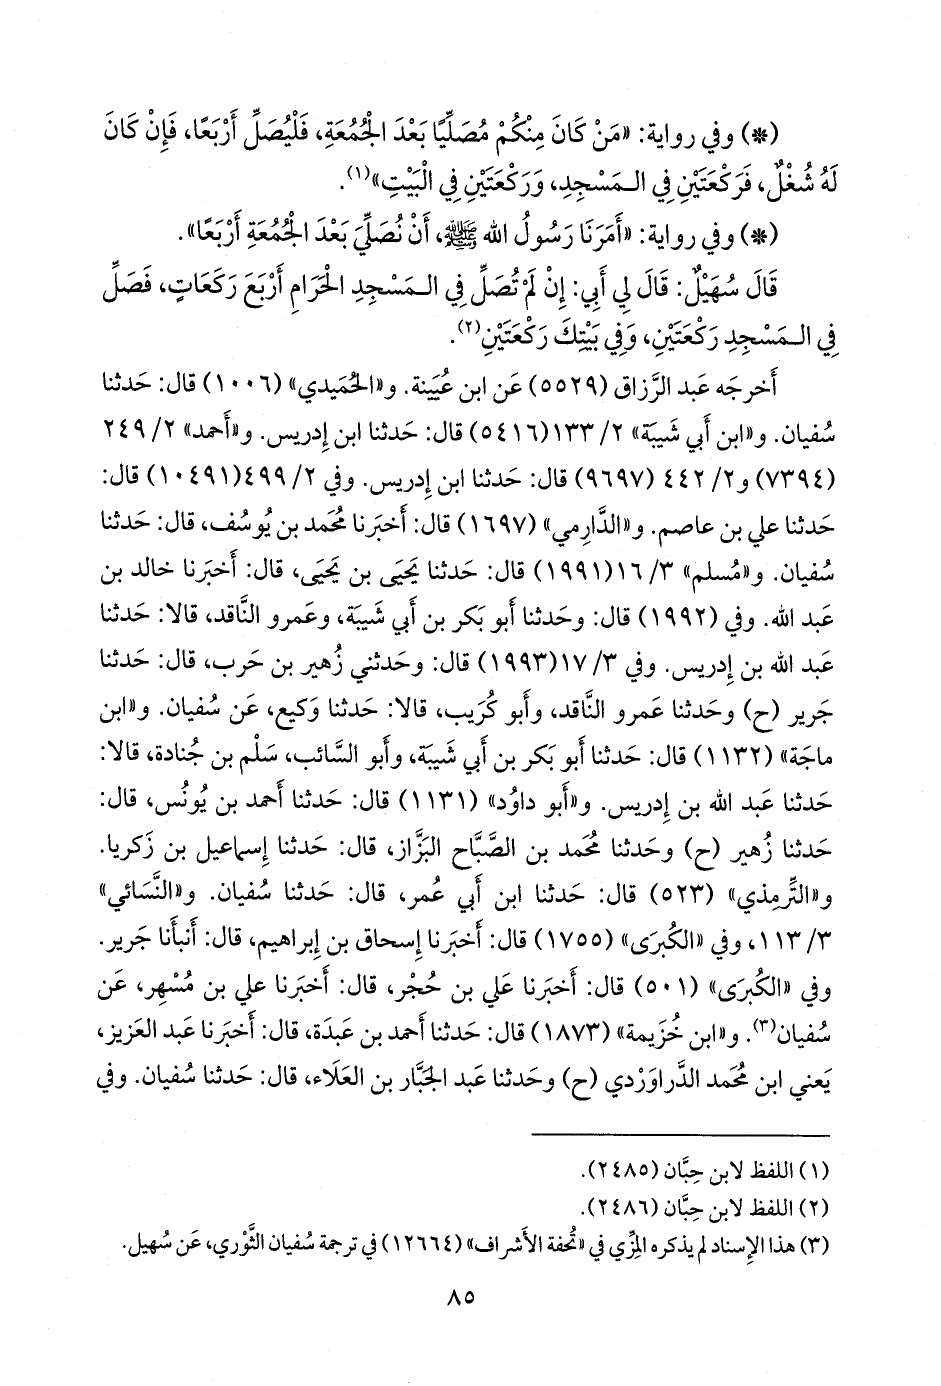 (*) وفي رواية: «مَنْ كَانَ مِنْكُمْ مُصَلِّيًا بَعْدَ الْجُمُعَةِ، فَلْيُصَلِّ أَرْبَعًا، فَإِنْ كَانَ
لَهُ شُغْلٌ، فَرَكْعَتَيْنِ فِي الـمَسْجِدِ، وَرَكْعَتَيْنِ فِي الْبَيْتِ»(١).
(*) وفي رواية: «أَمَرَنَا رَسُولُ الله ﷺ، أَنْ نُصَلِّيَ بَعْدَ الْجُمُعَةِ أَرْبَعًا».
قَالَ سُهَيْلٌ: قَالَ لِي أَبِي: إِنْ لَمْ تُصَلِّ فِي الـمَسْجِدِ الْحَرَامِ أَرْبَعَ رَكَعَاتٍ، فَصَلِّ
فِي الـمَسْجِدِ رَكْعَتَيْنِ، وَفِي بَيْتِكَ رَكْعَتَيْنِ(٢).
أَخرجَه عَبد الرَّزاق (٥٥٢٩) عَن ابن عُيَينة. و«الحُمَيدي» (١٠٠٦) قال: حَدثنا
سُفيان. و«ابن أَبي شَيبَة» ٢/ ١٣٣(٥٤١٦) قال: حَدثنا ابن إِدريس. و«أَحمد» ٢/ ٢٤٩
(٧٣٩٤) و٢/ ٤٤٢ (٩٦٩٧) قال: حَدثنا ابن إِدريس. وفي ٢/ ٤٩٩(١٠٤٩١) قال:
حَدثنا علي بن عاصم. و«الدَّارِمي» (١٦٩٧) قال: أَخبَرنا مُحمد بن يُوسُف، قال: حَدثنا
سُفيان. و«مُسلم» ٣/ ١٦(١٩٩١) قال: حَدثنا يَحيَى بن يَحيَى، قال: أَخبَرنا خالد بن
عَبد الله. وفي (١٩٩٢) قال: وحَدثنا أَبو بَكر بن أَبي شَيبَة، وعَمرو النَّاقد، قالا: حَدثنا
عَبد الله بن إِدريس. وفي ٣/ ١٧(١٩٩٣) قال: وحَدثني زُهير بن حَرب، قال: حَدثنا
جَرير (ح) وحَدثنا عَمرو النَّاقد، وأَبو كُرَيب، قالا: حَدثنا وَكيع، عَن سُفيان. و«ابن
ماجَة» (١١٣٢) قال: حَدثنا أَبو بَكر بن أَبي شَيبَة، وأَبو السَّائب، سَلْم بن جُنادة، قالا:
حَدثنا عَبد الله بن إِدريس. و«أَبو داوُد» (١١٣١) قال: حَدثنا أَحمد بن يُونُس، قال:
حَدثنا زُهير (ح) وحَدثنا مُحمد بن الصَّبَّاح البَزَّاز، قال: حَدثنا إِسماعيل بن زَكريا.
و«التِّرمِذي» (٥٢٣) قال: حَدثنا ابن أَبي عُمر، قال: حَدثنا سُفيان. و«النَّسَائي»
٣/ ١١٣، وفي «الكُبرَى» (١٧٥٥) قال: أَخبَرنا إِسحاق بن إِبراهيم، قال: أَنبأَنا جَرير.
وفي «الكُبرَى» (٥٠١) قال: أَخبَرنا عَلي بن حُجْر، قال: أَخبَرنا علي بن مُسْهِر، عَن
سُفيان(٣). و«ابن خُزَيمة» (١٨٧٣) قال: حَدثنا أَحمد بن عَبدَة، قال: أَخبَرنا عَبد العَزيز،
يَعني ابن مُحمد الدَّراوَرْدي (ح) وحَدثنا عَبد الجَبَّار بن العَلَاء، قال: حَدثنا سُفيان. وفي
(١) اللفظ لابن حِبَّان (٢٤٨٥).
(٢) اللفظ لابن حِبَّان (٢٤٨٦).
(٣) هذا الإِسناد لم يذكره المِزِّي في «تُحفة الأَشراف» (١٢٦٦٤) في ترجمة سُفيان الثَّوْري، عَن سُهيل.
٨٥